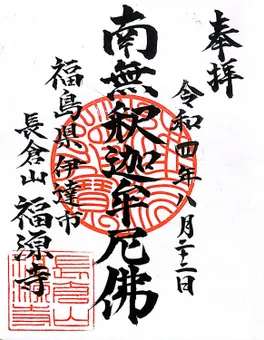 奉拝
令和四年八月二十二日
南無釈迦牟尼佛
福島県伊達市
長倉山
福源寺